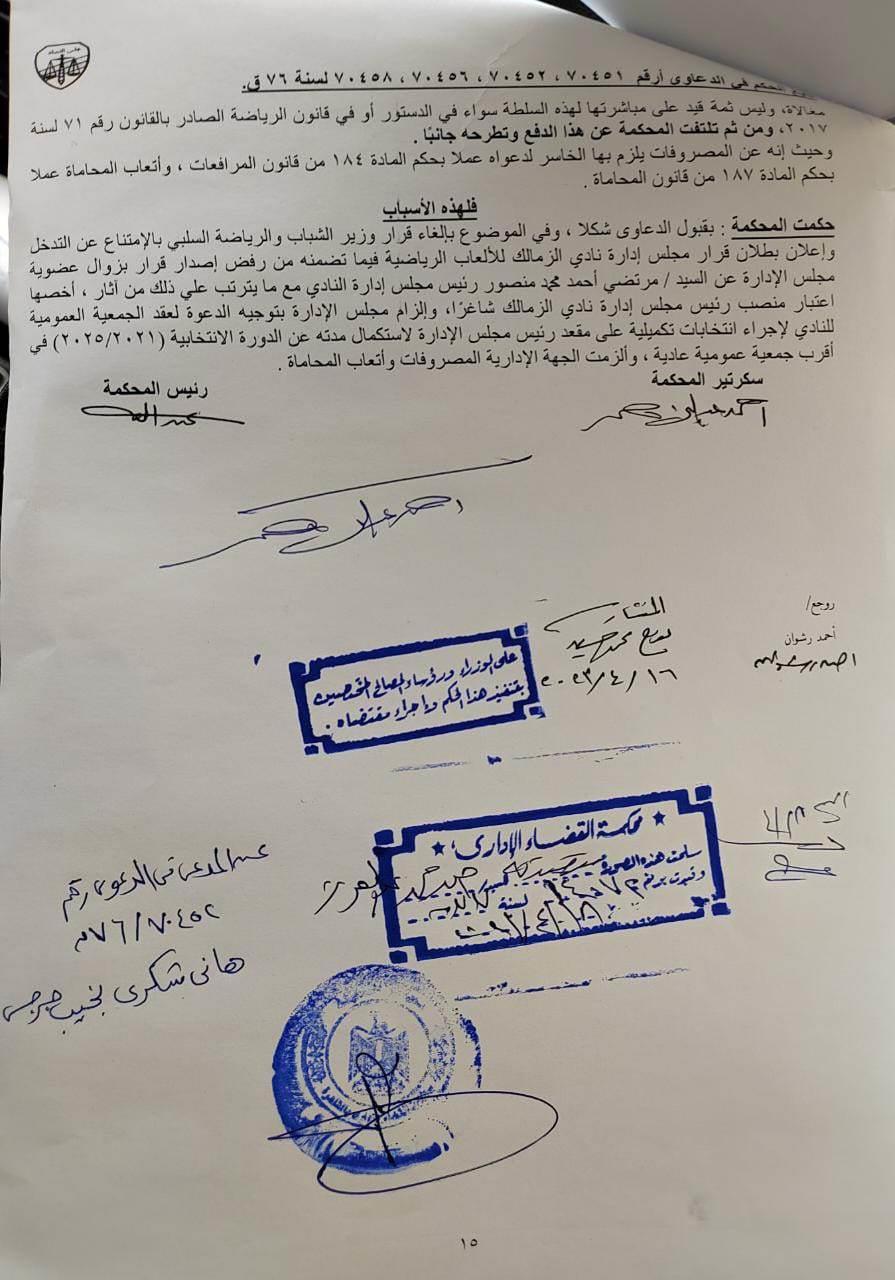 مجلس الدولة
الحكم في الدعاوى أرقم ٧٠٤٥١ ، ٧٠٤٥٢ ، ٧٠٤٥٦ ، ٧٠٤٥٨ لسنة ٧٦ ق.
مغالاة، وليس ثمة قيد على مباشرتها لهذه السلطة سواء في الدستور أو في قانون الرياضة الصادر بالقانون رقم ٧١ لسنة
٢٠١٧، ومن ثم تلتفت المحكمة عن هذا الدفع وتطرحه جانبًا .
وحيث إنه عن المصروفات يلزم بها الخاسر لدعواه عملا بحكم المادة ١٨٤ من قانون المرافعات ، وأتعاب المحاماة عملا
بحكم المادة ١٨٧ من قانون المحاماة .
فلهذه الأسباب
حكمت المحكمة : بقبول الدعاوى شكلا ، وفي الموضوع بإلغاء قرار وزير الشباب والرياضة السلبي بالإمتناع عن التدخل
وإعلان بطلان قرار مجلس إدارة نادي الزمالك للألعاب الرياضية فيما تضمنه من رفض إصدار قرار بزوال عضوية
مجلس الإدارة عن السيد / مرتضي أحمد محمد منصور رئيس مجلس إدارة النادي مع ما يترتب علي ذلك من آثار ، أخصها
اعتبار منصب رئيس مجلس إدارة نادي الزمالك شاغرًا، وإلزام مجلس الإدارة بتوجيه الدعوة لعقد الجمعية العمومية
للنادي لإجراء انتخابات تكميلية على مقعد رئيس مجلس الإدارة لاستكمال مدته عن الدورة الانتخابية (٢٠٢٥/٢٠٢١) في
أقرب جمعية عمومية عادية ، وألزمت الجهة الإدارية المصروفات وأتعاب المحاماة .
سكرتير المحكمة
رئيس المحكمة
روجع/
أحمد رشوان
المستشار
٢٠٢٣/٤/١٦
على الوزراء ورؤساء المصالح المختصين
بتنفيذ هذا الحكم وإجراء مقتضاه .
محكمة القضاء الإدارى
سلمت هذه الصورة
وقيدت برقم
لسنة
عن المدعى فى الدعوى رقم
٧٦/٧٠٤٥٢ ق
هانى شكرى نجيب جرجس
١٥